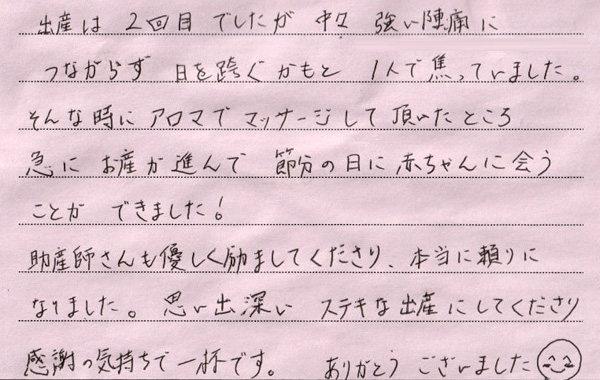 出産は 2回目 でしたが 中々 強い陣痛に
つながらず 日を跨ぐ かもと 1人で焦っていました。
そんな時に アロマで マッサージして 頂いたところ
急に お産が進んで 節分の日に赤ちゃんに会う
ことが できました!
助産師さんも優しく励ましてくださり、本当に頼りに
なりました。 思い出深い ステキな出産にしてくださり
感謝の気持ちで一杯です。 ありがとう ございました